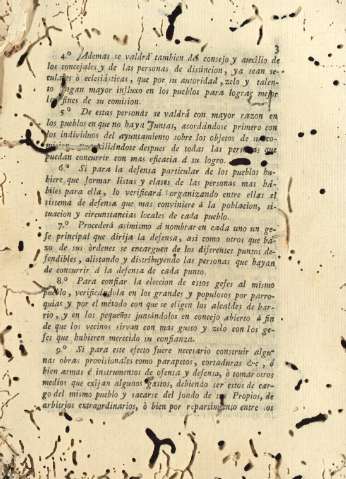 3
4.º Ademas se valdrá tambien del consejo y auxîlio de
los concejales y de las personas de distincion, ya sean se-
culares ò eclesiásticas, que por su autoridad, zelo y talen-
to tengan mayor influxo en los pueblos para lograr mejor
fines de su comision.
5.º De estas personas se valdrá con mayor razon en
los pueblos en que no haya Juntas, acordándose primero con
los individuos del ayuntamiento sobre los objetos de su co-
despues de todas las personas que
puedan concurrir con mas eficacia á su logro.
6.º Si para la defensa particular de los pueblos hu-
biere que formar listas y clases de las personas mas há-
biles para ella, lo verificará organizando entre ellas el
sistema de defensa que mas conviniere á la poblacion, si-
tuacion y circunstancias locales de cada pueblo.
7.º Procederá asimismo á nombrar en cada uno un ge-
fe principal que dirija la defensa, así como otros que ba-
xo de sus órdenes se encarguen de los diferentes puntos de-
fendibles, alistando y distribuyendo las personas que hayan
de concurrir á la defensa de cada punto.
8.º Para confiar la eleccion de estos gefes al mismo
pueblo, verificándola en los grandes y populosos por parro-
quias y por el método con que se eligen los alcaldes de bar-
rio, y en los pequeños juntándolos en concejo abierto á fin
de que los vecinos sirvan con mas gusto y zelo con los ge-
fes que hubieren merecido su confianza.
9.º Si para este efecto fuere necesario construir algu-
nas obras provisionales como parapetos, cortaduras &c, ò
bien armas é instrumentos de ofensa y defensa, ò tomar otros
medios que exîjan algunos gastos, debiendo ser estos de car-
go del mismo pueblo y sacarse del fondo de sus Propios, de
arbitrios extraordinarios, ò bien por repartimiento entre los